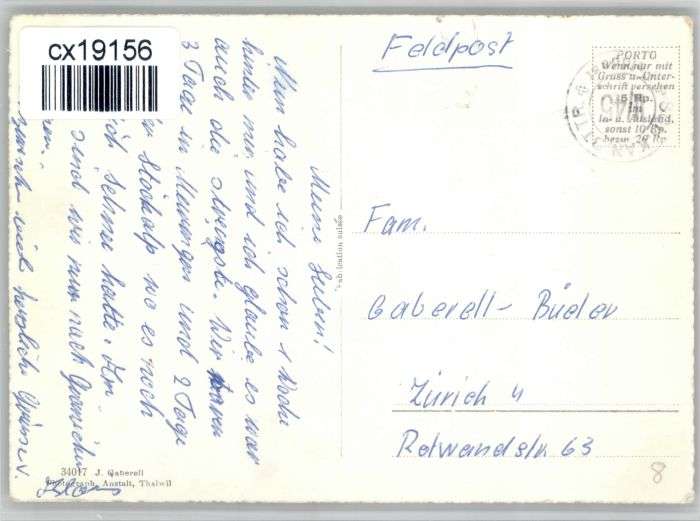 cx19156
Feldpost
PORTO
Wenn nur mit
Gruss u. Unter-
schrift versehen
5 Rp.
im
In- u. Ausland,
sonst 10 Rp.
bezw. 20 Rp.
Meine Lieben!
Nun habe ich schon 1 Woche
hinter mir und ich glaube es war
auch die strengste. Wir waren
3 Tage in Meiringen und 2 Tage
Stockalp wo es noch
ich Schnee hatte. Am
sind wir nun nach
viel herzlich Grüsse v.
Fam.
Gaberell-Büeler
Zürich 4
Rotwandstr 63
fabrication suisse
34017 J. Gaberell
Photograph. Anstalt, Thalwil
8